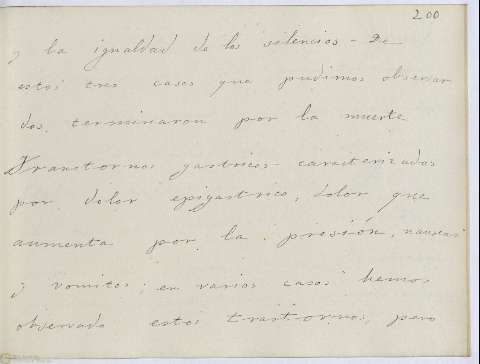 200
y la igualdad de los silencios - De
estos tres casos que pudimos observar
dos, terminaron por la muerte
Transtornos gastricos caracterizados
por dolor epigastrico, dolor que
aumenta por la presión, nauseas
y vomitos; en varios casos hemos
observado estos trastornos, pero